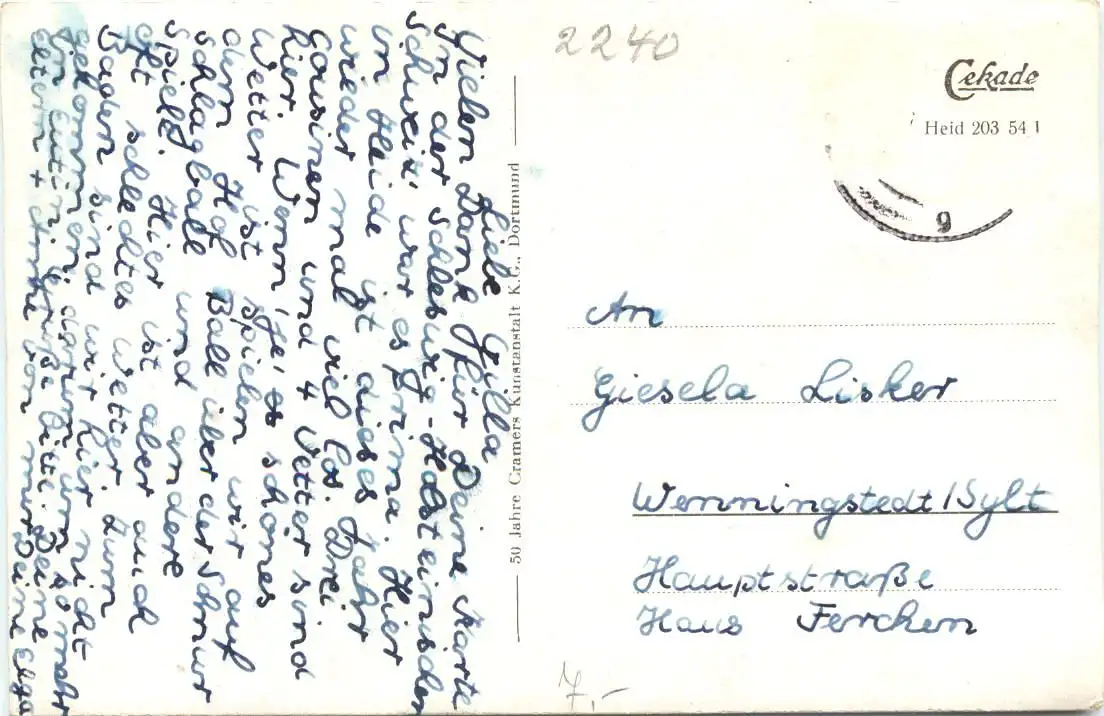 Liebe Gilla
Vielen Dank für Deine Karte
In der Schleswig-Holsteinischen
Schweiz war es prima. Hier
in Heide ist dieses Jahr
wieder mal viel los. Drei
Cousinen und 4 Vetter sind
hier. Wenn
Wetter ist spielen wir auf
dem Hof Ball über der Schnur
Schlagball und andere
Spiele. Hier ist aber auch
oft schlechtes Wetter. Zum
Baden sind wir hier nicht
gekommen, darum um so mehr
in Eutin. Grüße bitte Deine
Eltern + Antje von mir Deine Elga
50 Jahre Cramers Kunstanstalt K.G., Dortmund
2240
Cekade
Heid 203 54 1
9
An
Giesela Lisker
Wenningstedt/Sylt
Hauptstraße
Haus Ferchen
7,-